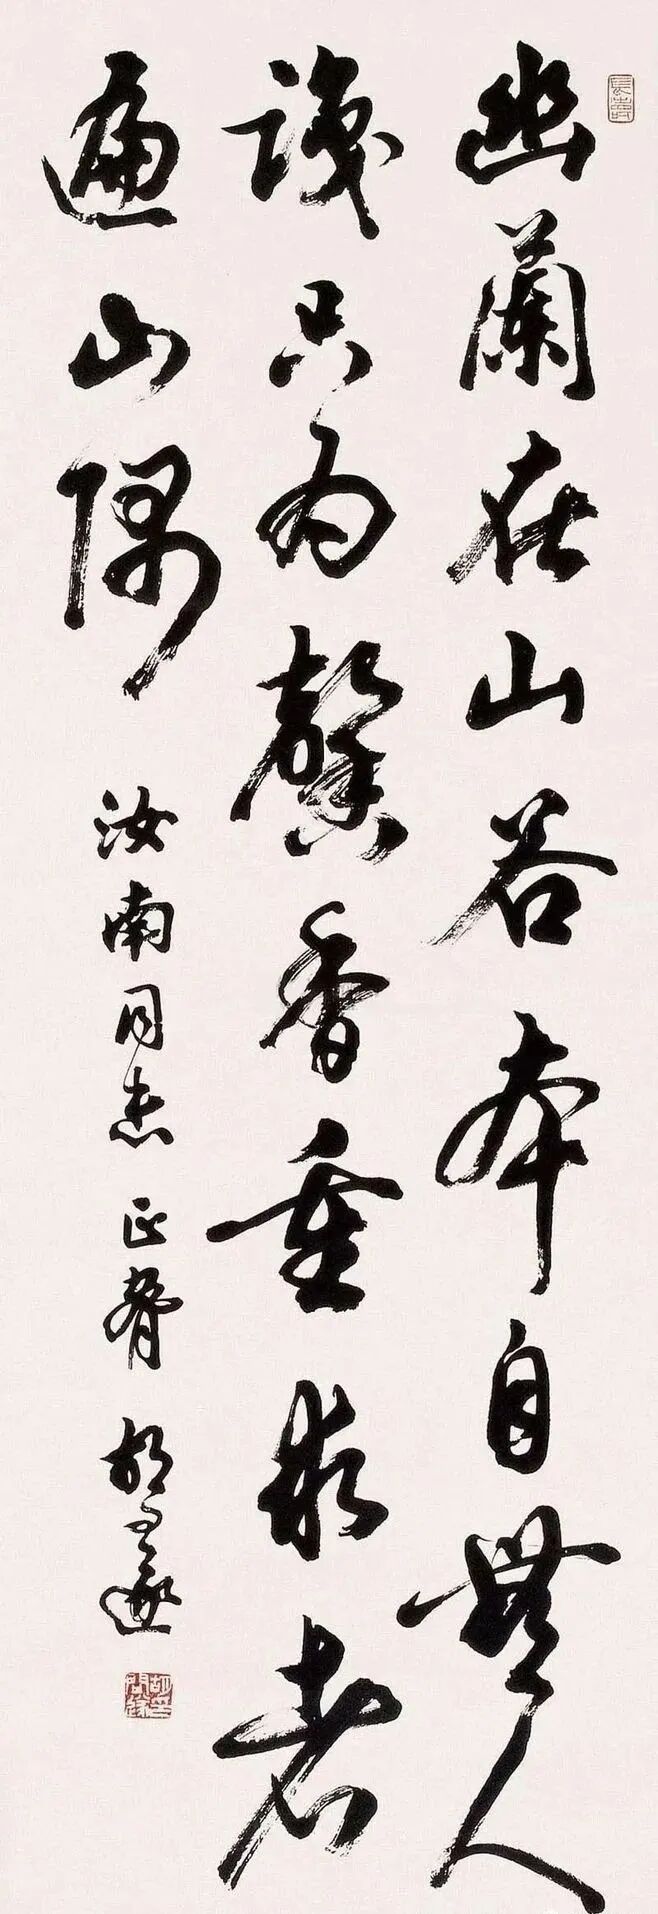 幽蘭在山谷本自無人
識只为馨香重求者
遍山隅
汝南同志正腕 胡問遂